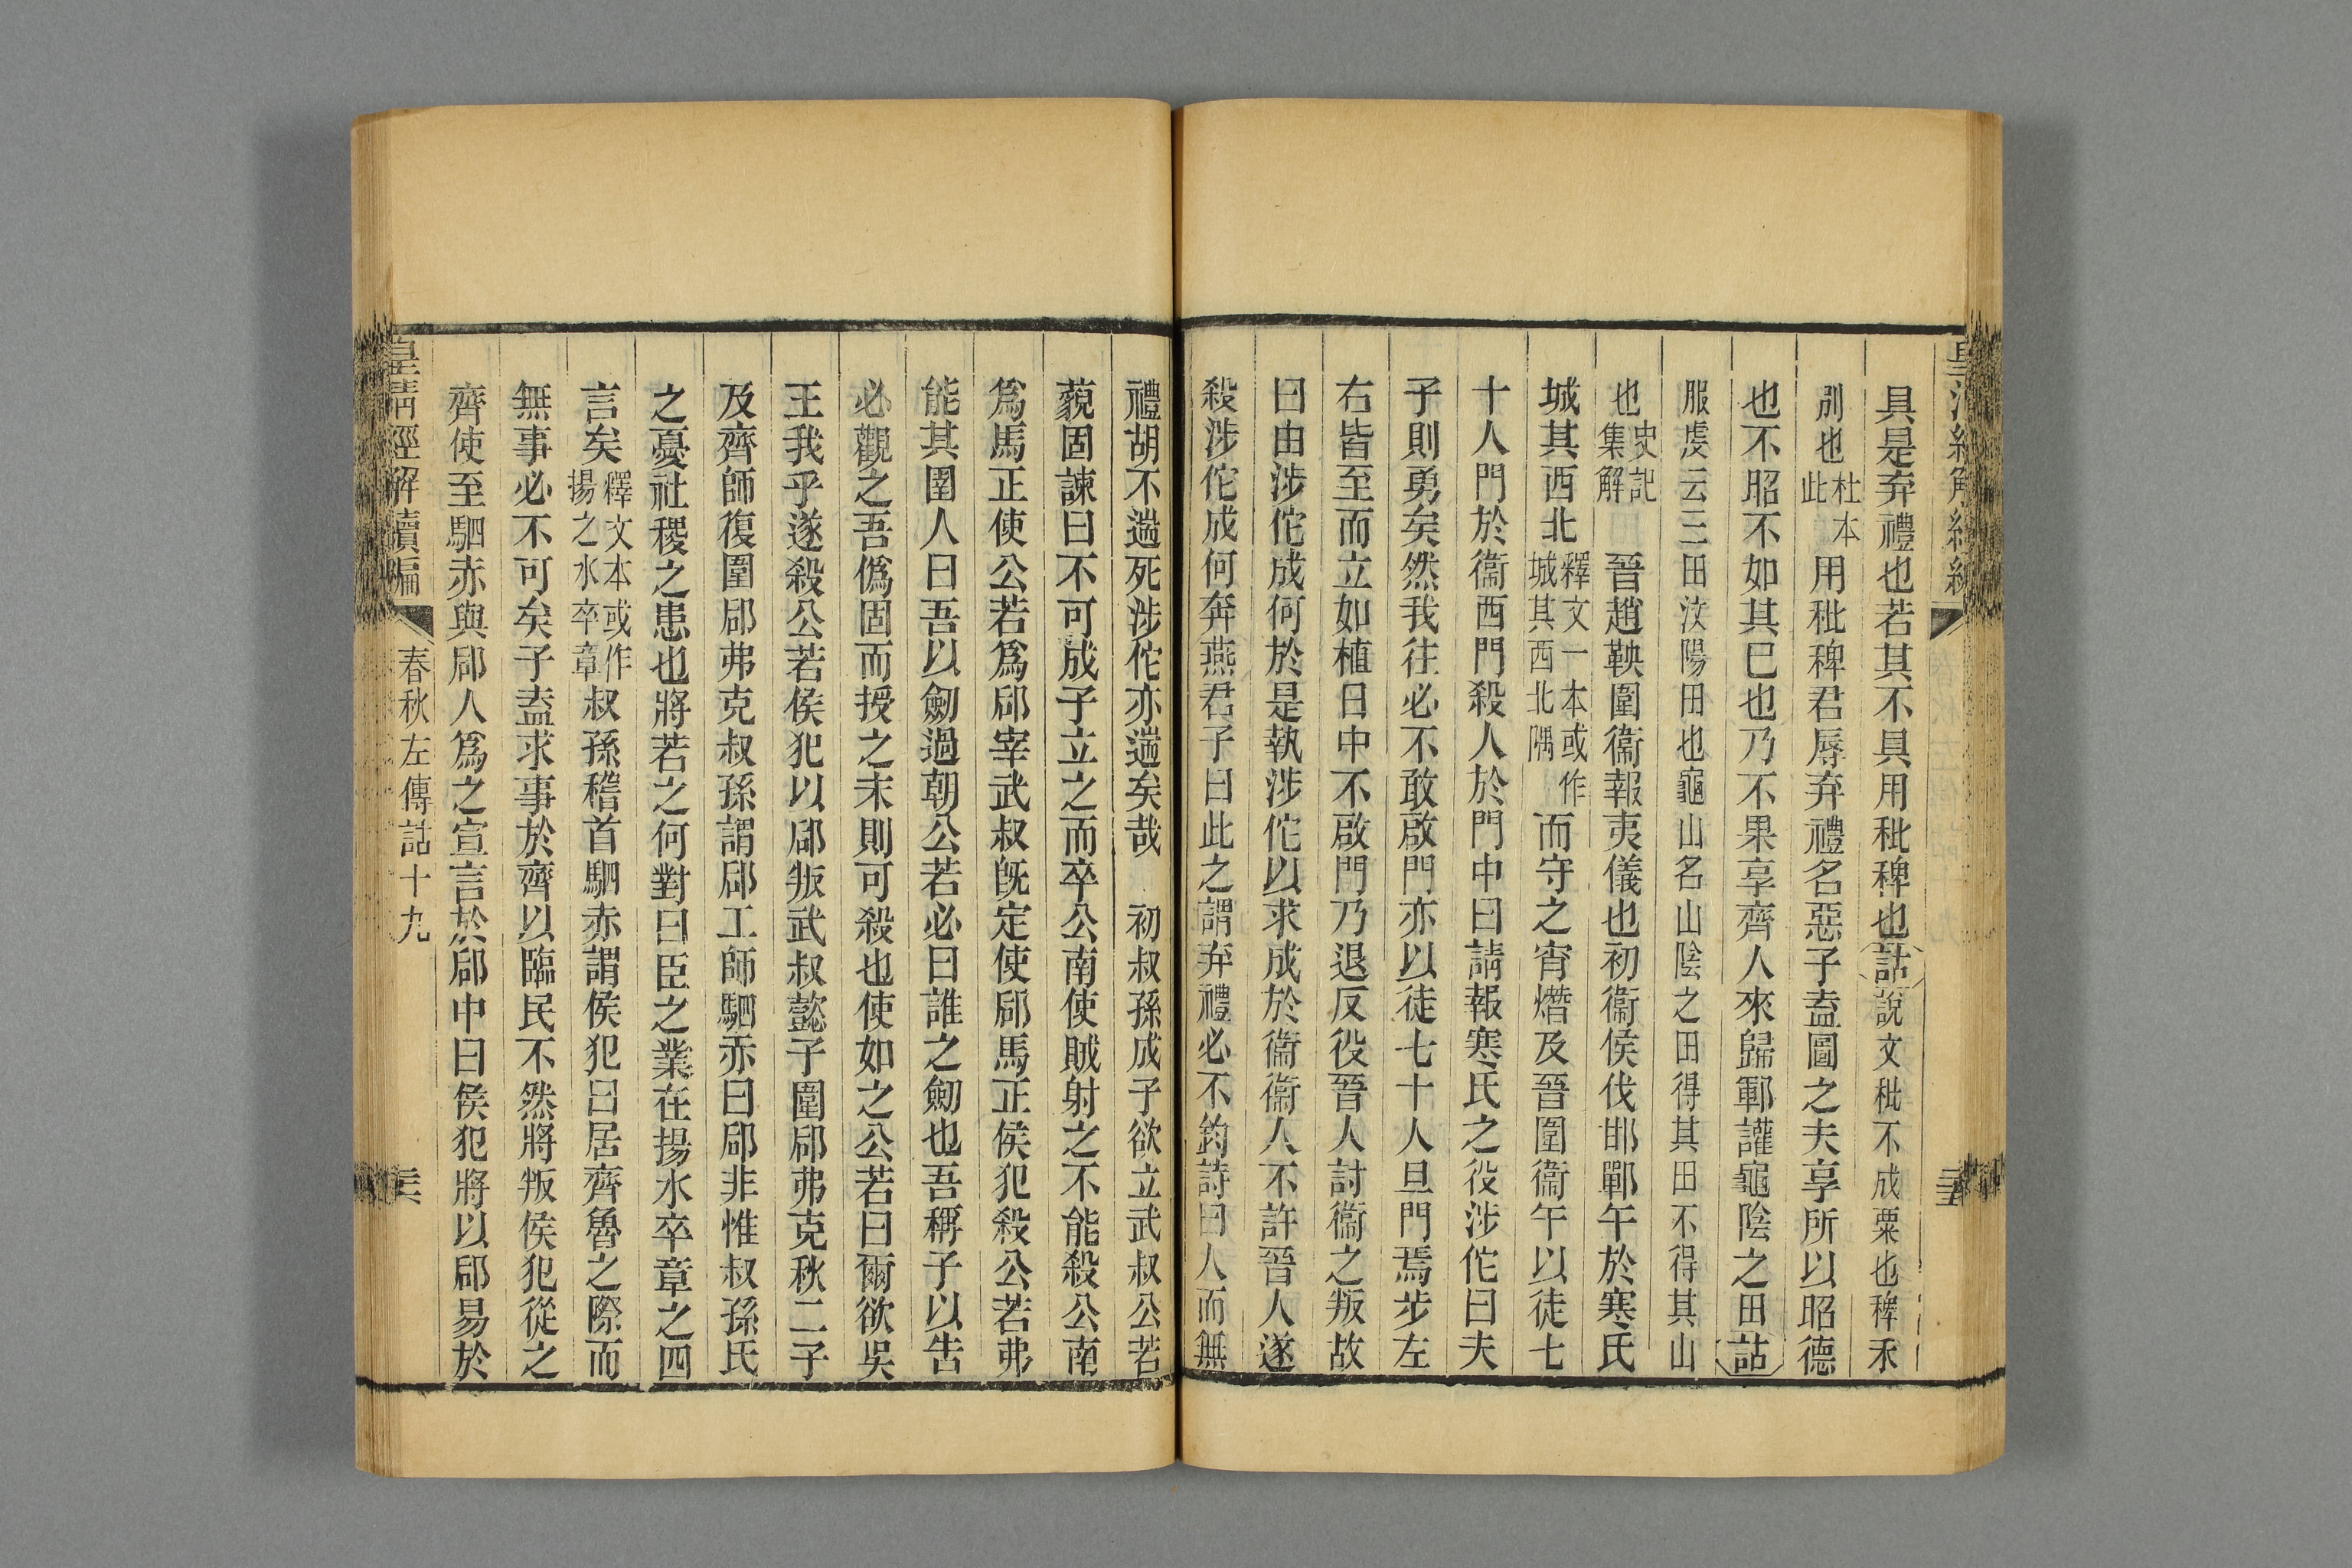 具是弃禮也若其不具用秕稗也詁說文秕不成粟也稗禾
別也杜本此用秕稗君辱弃禮名惡子盍圖之夫享所以昭德
也不昭不如其巳也乃不果享齊人來歸鄆讙龜陰之田詁
服虔云三田汶陽田也龜山名山陰之田得其田不得其山
也史記集解晉趙鞅圍衞報夷儀也初衞侯伐邯鄲午於寒氏
城其西北釋文一本或作城其西北隅而守之宵熸及晉圍衞午以徒七
十人門於衞西門殺人於門中曰請報寒氏之役涉佗曰夫
子則勇矣然我往必不敢啟門亦以徒七十人旦門焉步左
右皆至而立如植日中不啟門乃退反役晉人討衞之叛故
曰由涉佗成何於是執涉佗以求成於衞衞人不許晉人遂
殺涉佗成何奔燕君子曰此之謂弃禮必不鈞詩曰人而無
禮胡不遄死涉佗亦遄矣哉 初叔孫成子欲立武叔公若
藐固諫曰不可成子立之而卒公南使賊射之不能殺公南
爲馬正使公若爲郈宰武叔旣定使郈馬正侯犯殺公若弗
能其圉人曰吾以劒過朝公若必曰誰之劒也吾稱子以告
必觀之吾僞固而授之末則可殺也使如之公若曰爾欲吳
王我乎遂殺公若侯犯以郈叛武叔懿子圍郈弗克秋二子
及齊師復圍郈弗克叔孫謂郈工師駟赤曰郈非惟叔孫氏
之憂社稷之患也將若之何對曰臣之業在揚水卒章之四
言矣釋文本或作揚之水卒章叔孫稽首駟赤謂侯犯曰居齊魯之際而
無事必不可矣子盍求事於齊以臨民不然將叛侯犯從之
齊使至駟赤與郈人爲之宣言於郈中曰侯犯將以郈易於
皇淸經解續編 春秋左傳詁十九